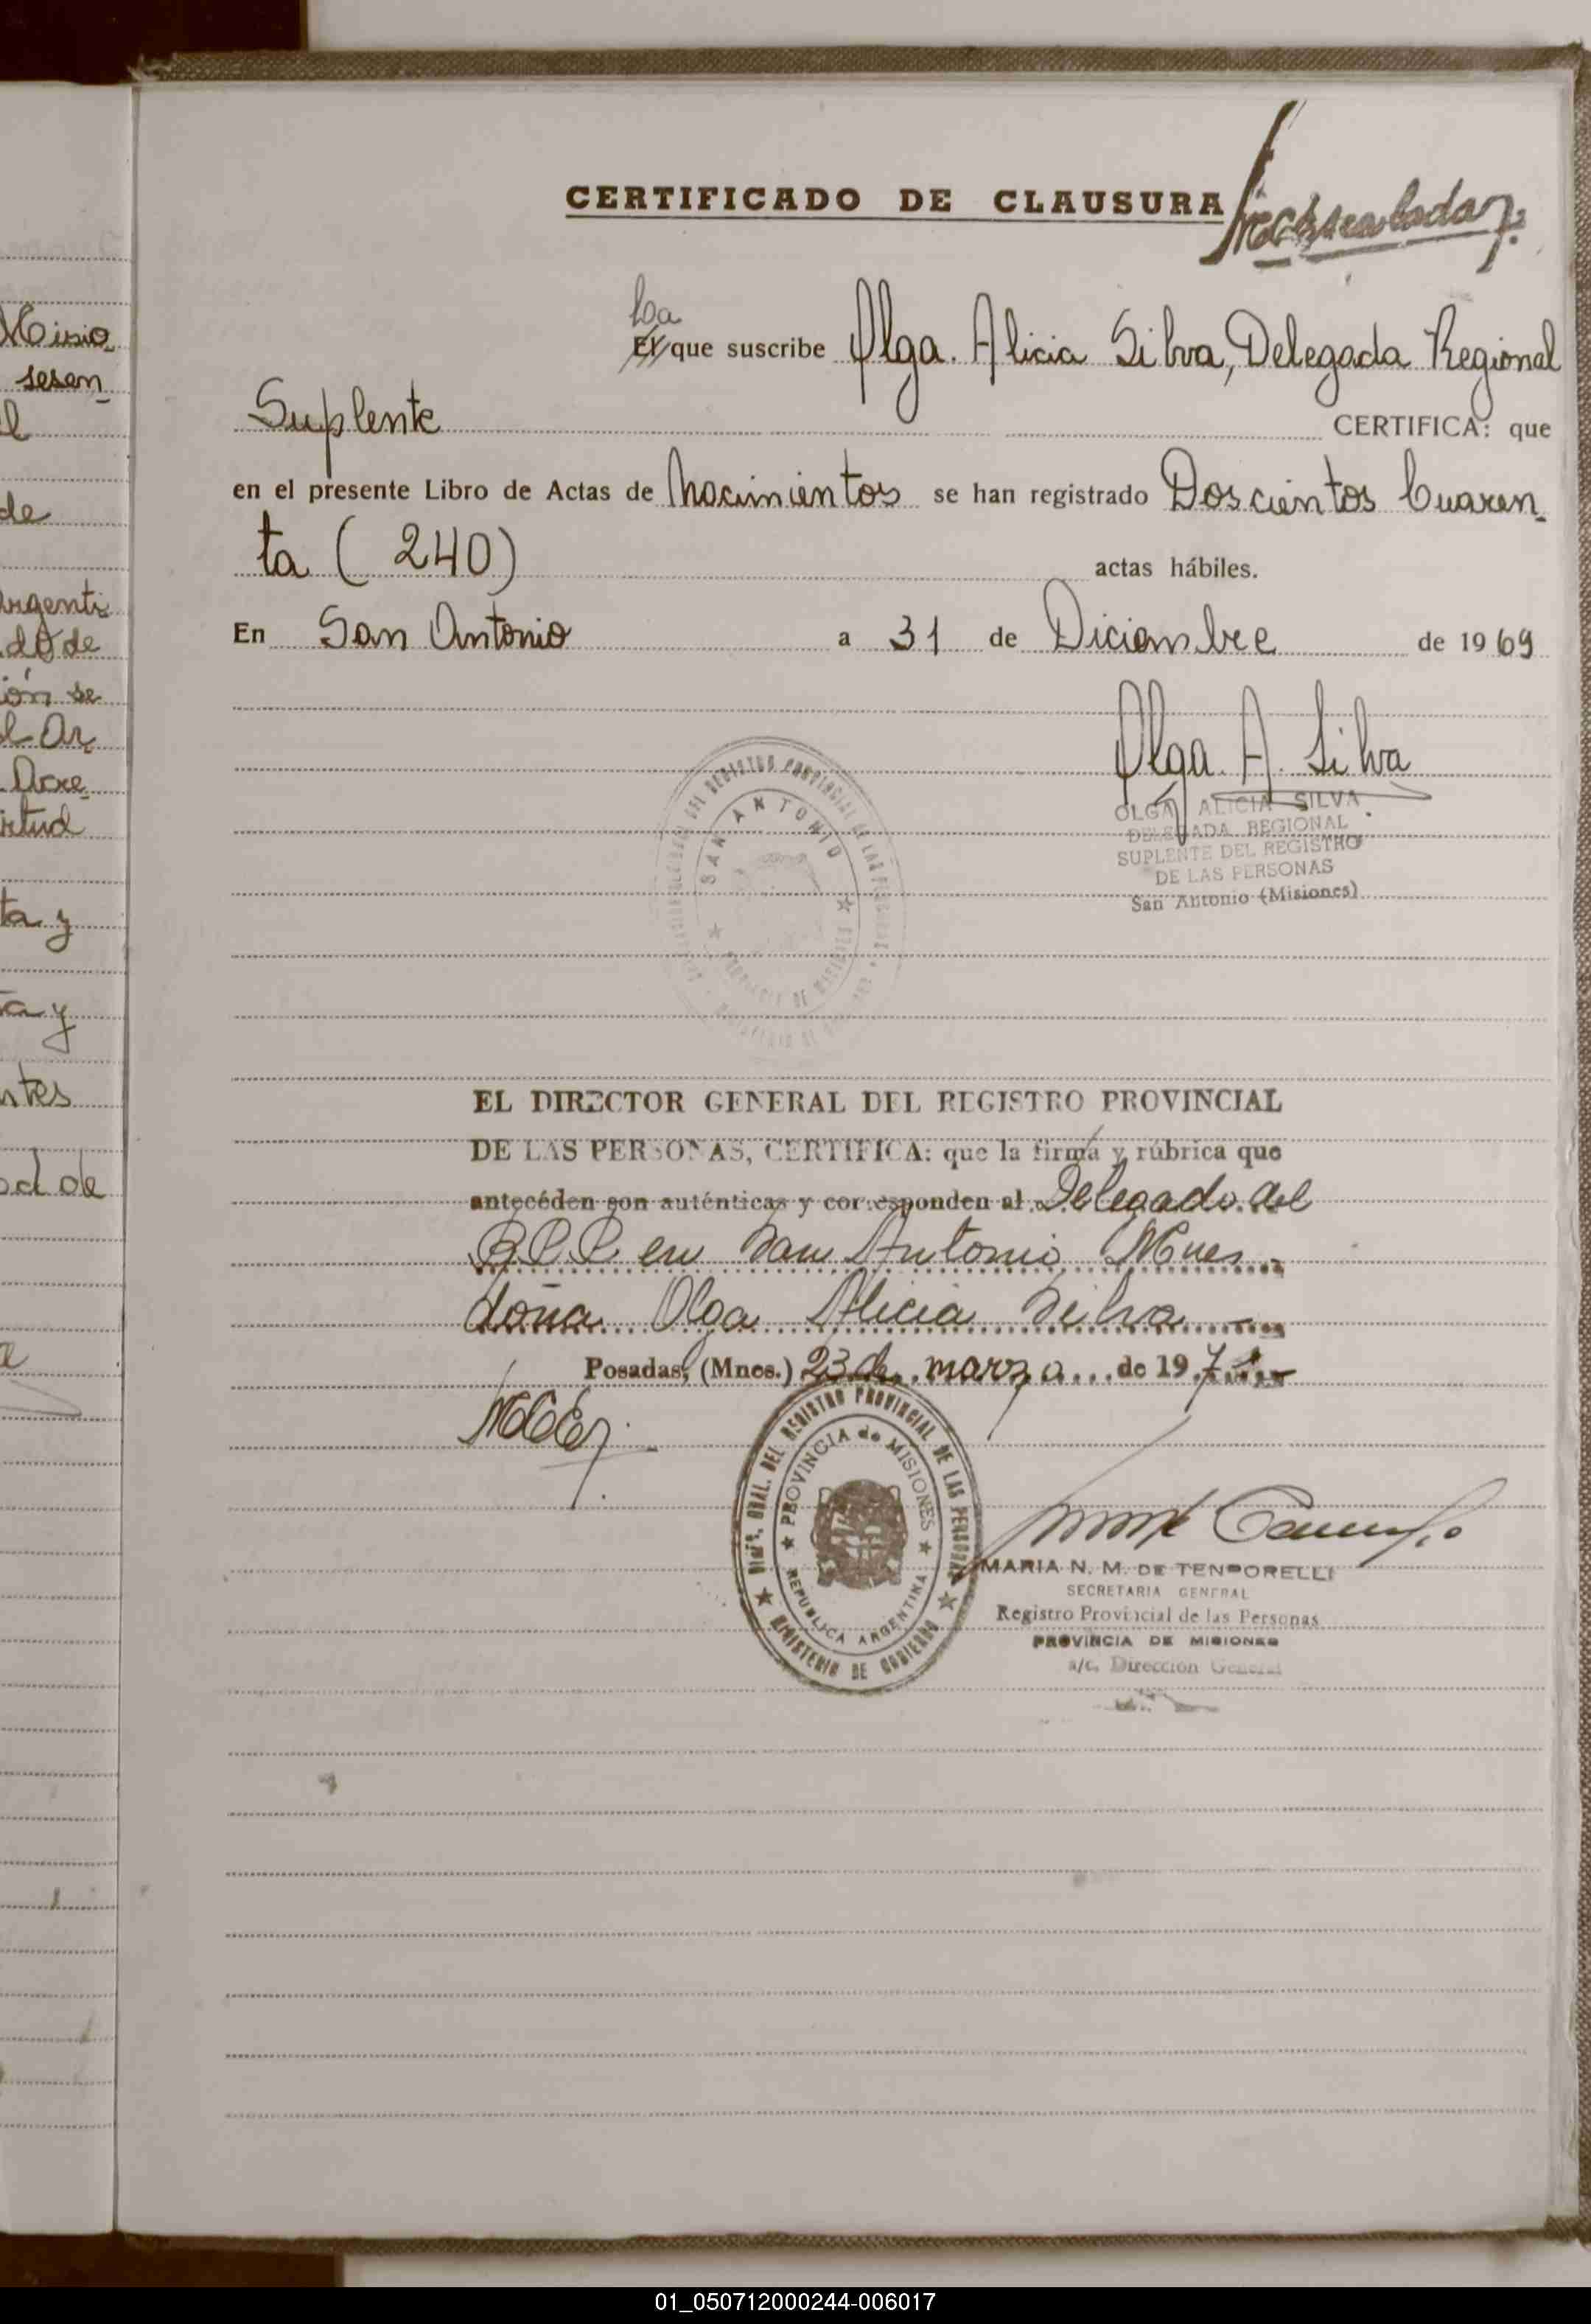 CERTIFICADO DE CLAUSURA
La
El que suscribe Olga Alicia Silva, Delegada Regional
Suplente CERTIFICA: que
en el presente Libro de Actas de Nacimientos se han registrado Doscientos Cuaren-
ta (240) actas hábiles.
En San Antonio a 31 de Diciembre de 1969
Olga A. Silva
OLGA ALICIA SILVA
DELEGADA REGIONAL
SUPLENTE DEL REGISTRO
DE LAS PERSONAS
San Antonio (Misiones)
SAN ANTONIO
PROVINCIA DE MISIONES
EL DIRECTOR GENERAL DEL REGISTRO PROVINCIAL
DE LAS PERSONAS, CERTIFICA: que la firma y rúbrica que
antecéden son auténticas y corresponden al Delegado del
R.P.P. en San Antonio Mnes
doña Olga Alicia Silva
Posadas, (Mnes.) 23 de marzo de 197
DIREC. GRAL. DEL REGISTRO PROVINCIAL DE LAS PERSONAS
PROVINCIA de MISIONES
REPUBLICA ARGENTINA
MINISTERIO DE GOBIERNO
MARIA N. M. DE TEMPORELLI
SECRETARIA GENERAL
Registro Provincial de las Personas
PROVINCIA DE MISIONES
a/c. Dirección General
Misio-
sesen-
l
de
Argenti-
do de
ión se
l Ar-
Arre-
irtud
ta y
ta y
ntes
d de
01_050712000244-006017